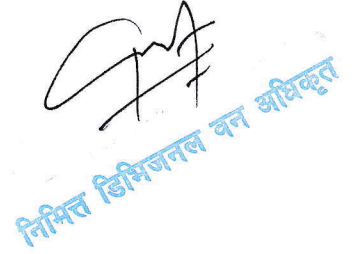 निमित्त डिभिजनल वन अधिकृत